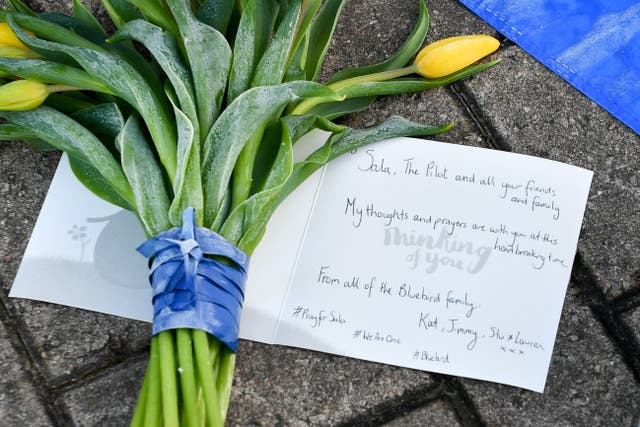 Sala, The Pilot and all your friends
and family
My thoughts and prayers are with you at this
heartbreaking time.
Thinking
of you
From all of the Bluebird family
Kat, Jimmy, Stu & Lauren
x x x
#PrayFrSala
#WeAreOne
#Bluebird